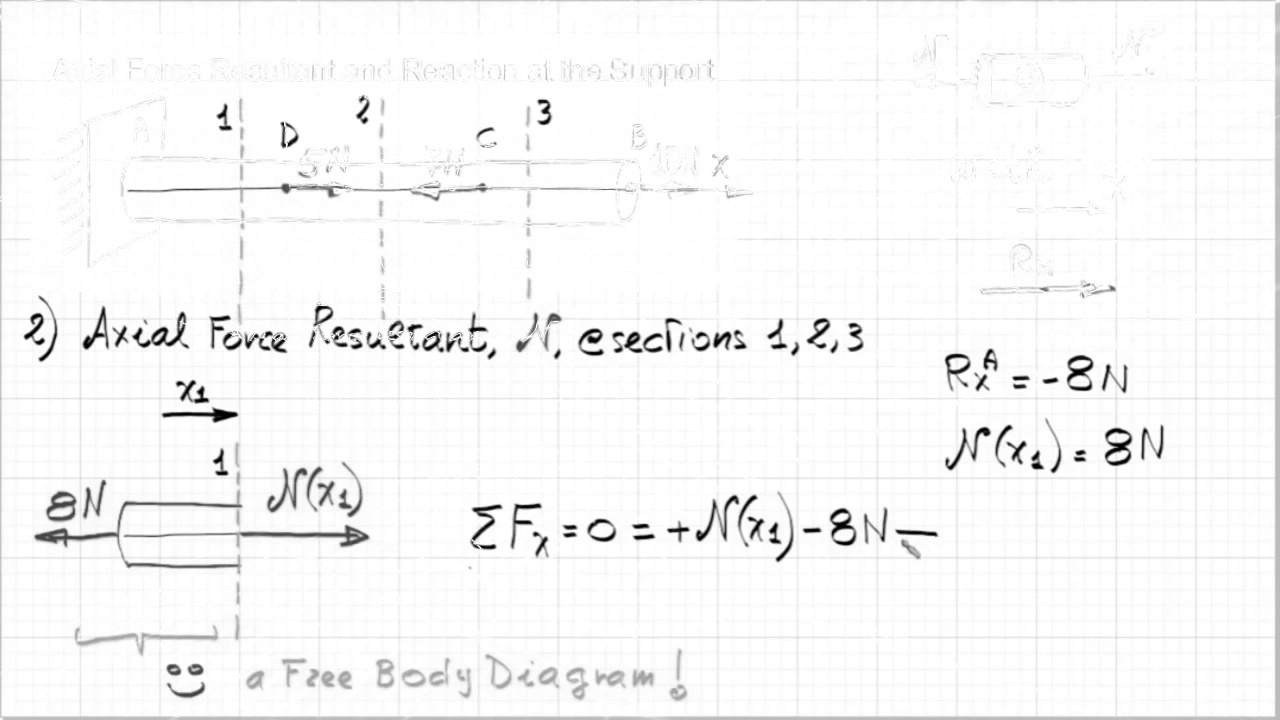 Axial Force Resultant and Reaction at the Support
N N
1 2 3
A D C B
5N 7N 10N x
x
Rx
2) Axial Force Resultant, N, @sections 1,2,3
RxA = -8N
x1
N(x1) = 8N
1
8N N(x1)
ΣFx = 0 = +N(x1) - 8N —
a Free Body Diagram!